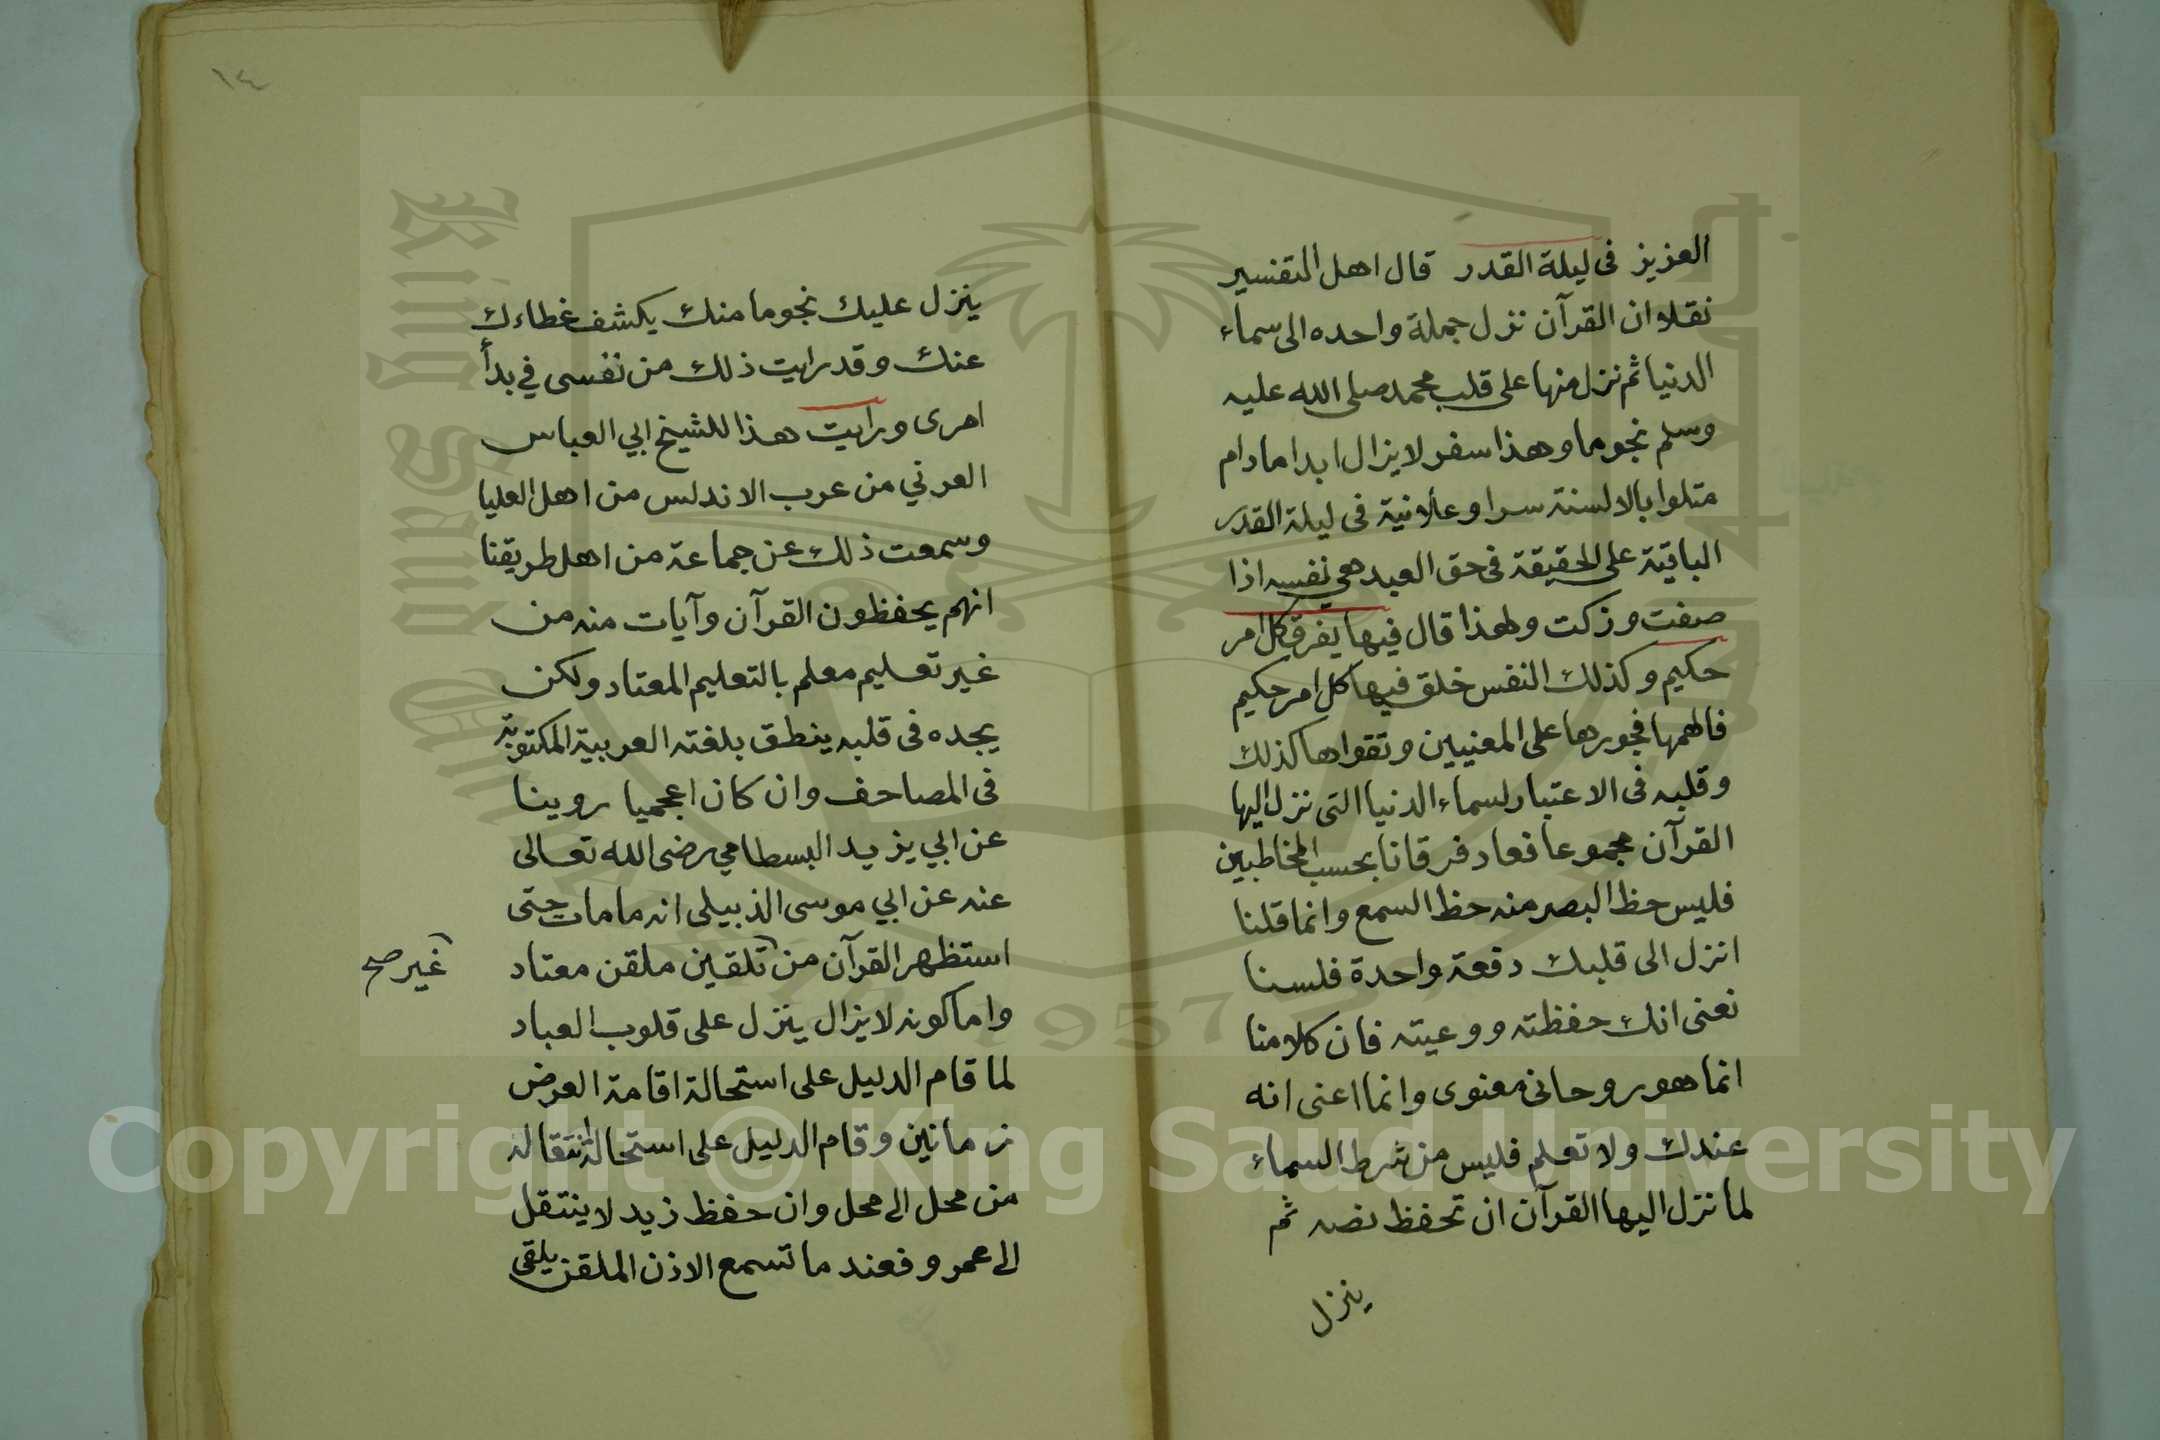 العزيز في ليلة القدر قال اهل التفسير
نقلا ان القرآن نزل جملة واحده الى سماء
الدنيا ثم نزل منها على قلب محمد صلى الله عليه
وسلم نجوما وهذا سفر لا يزال ابدا مادام
متلوا بالالسنة سرا وعلانية فى ليلة القدر
الباقية على الحقيقة فى حق العبد هي نفسه اذا
صفت وزكت ولهذا قال فيها يفرق كل امر
حكيم وكذلك النفس خلق فيها كل امر حكيم
فالهمها فجورها على المعنيين وتقواها كذلك
وقلبه فى الاعتبار لسماء الدنيا التى نزل اليها
القرآن مجموعا فعاد فرقانا بحسب المخاطبين
فليس حظ البصر منه حظ السمع وانما قلنا
انزل الى قلبك دفعة واحدة فلسنا
نعنى انك حفظته ووعيته فان كلامنا
انما هو روحانى معنوى وانما اعنى انه
عندك ولا تعلم فليس من شرط السماء
لما نزل اليها القرآن ان تحفظ نصه ثم
ينزل
١٤
ينزل عليك نجوما منك يكشف غطاءك
عنك وقد رايت ذلك من نفسى في بدأ
امرى ورايت هذا للشيخ ابي العباس
العرني من عرب الاندلس من اهل العليا
وسمعت ذلك عن جماعة من اهل طريقنا
انهم يحفظون القرآن وآيات منه من
غير تعليم معلم بالتعليم المعتاد ولكن
يجده فى قلبه ينطق بلغته العربية المكتوبة
فى المصاحف وان كان اعجميا روينا
عن ابي يزيد البسطامي رضى الله تعالى
عنه عن ابي موسى الذبيلى انه ما مات حتى
استظهر القرآن من تلقين ملقن معتاد
غير صح
واما كونه لا يزال ينزل على قلوب العباد
لما قام الدليل على استحالة اقامة العرض
زمانين وقام الدليل على استحالة انتقاله
من محل الى محل وان حفظ زيد لا ينتقل
الى عمرو فعند ما تسمع الاذن الملقن يلقى
Copyright © King Saud University
King Saud University
1957